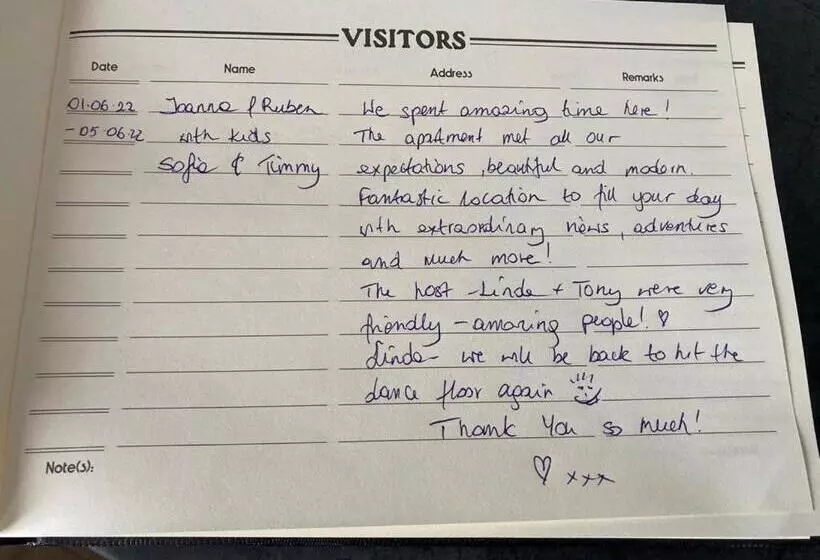 VISITORS
Date Name Address Remarks
01.06.22 Joanna & Ruben We spent amazing time here!
- 05.06.22 with kids The apartment met all our
Sofia & Timmy expectations, beautiful and modern.
Fantastic location to fill your day
with extraordinary news, adventures
and much more!
The host - Linda + Tony were very
friendly - amazing people! ♡
Linda - we will be back to hit the
dance floor again
Thank You so much!
Note(s):
♡ xxx